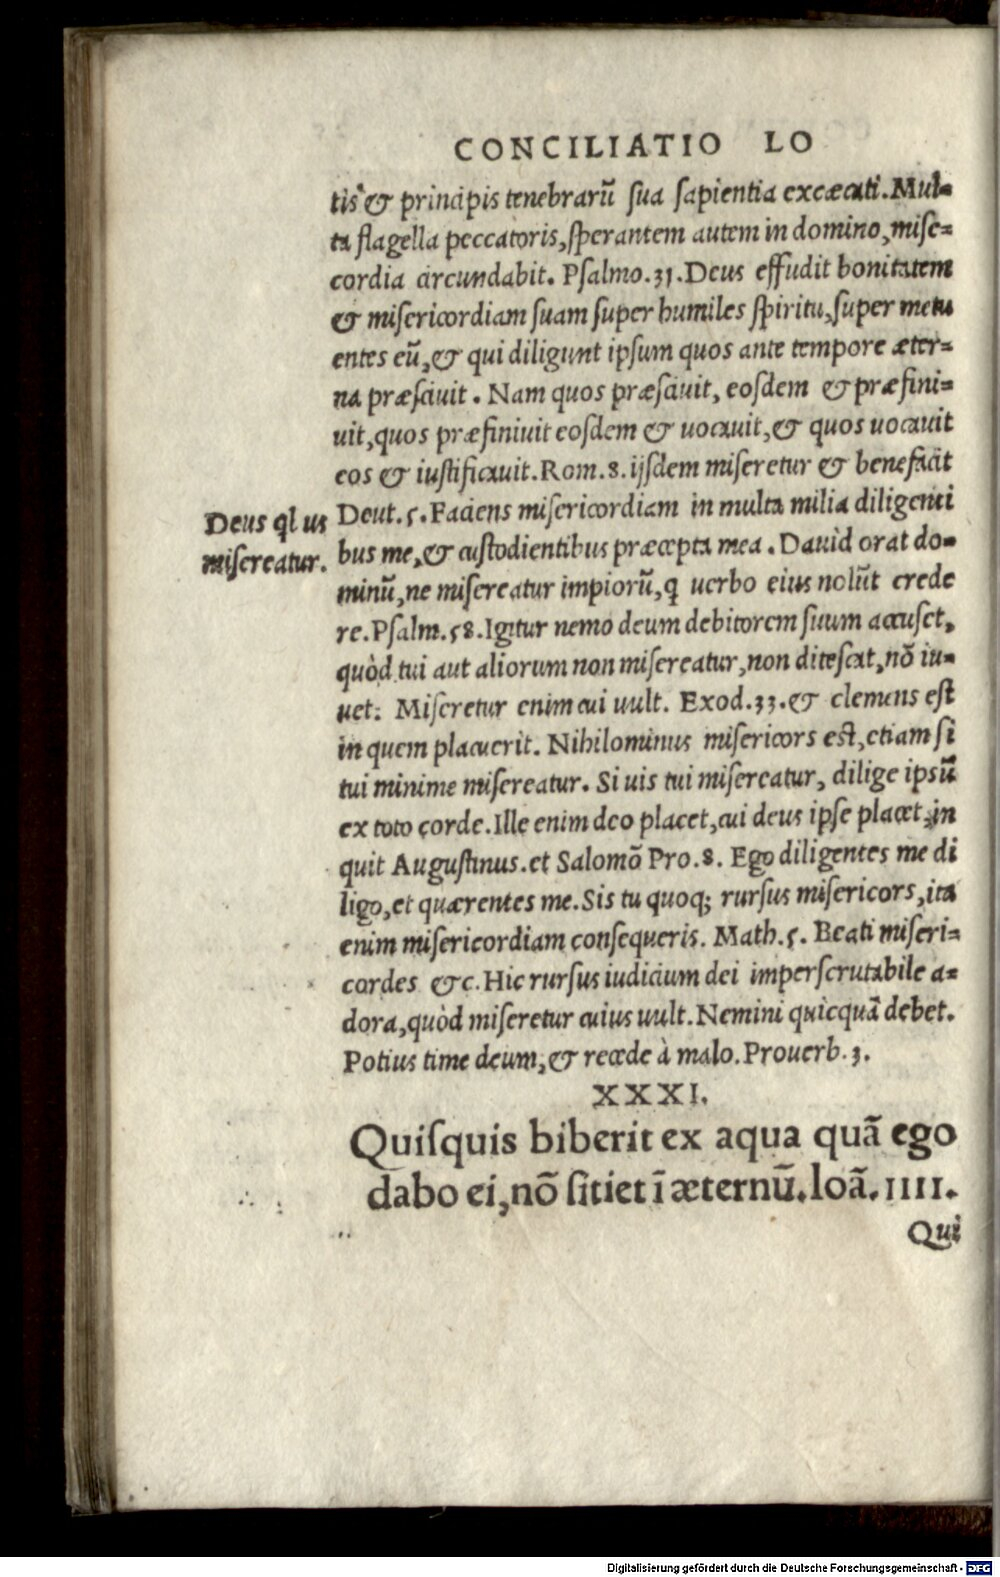 CONCILIATIO LO
tis & principis tenebrarū sua sapientia excæcati. Mul=
ta flagella peccatoris, sperantem autem in domino, mise=
cordia circundabit. Psalmo. 31. Deus effudit bonitatem
& misericordiam suam super humiles spiritu, super metu
entes eū, & qui diligunt ipsum quos ante tempore æter=
na præscivit. Nam quos præscivit, eosdem & præfini=
uit, quos præfiniuit eosdem & uocauit, & quos uocauit
eos & iustificauit. Rom. 8. ijsdem miseretur & benefacit
Deus ql us
misereatur.
Deut. 5. Faciens misericordiam in multa milia diligenti
bus me, & custodientibus præcepta mea. Dauid orat do=
minū, ne misereatur impiorū, q uerbo eius nolūt crede
re. Psalm. 58. Igitur nemo deum debitorem suum accuset,
quòd tui aut aliorum non misereatur, non ditescat, nō iu=
uet: Miseretur enim cui uult. Exod. 33. & clemens est
in quem placuerit. Nihilominus misericors est, etiam si
tui minime misereatur. Si uis tui misereatur, dilige ipsū
ex toto corde. Ille enim deo placet, cui deus ipse placet, in
quit Augustinus. et Salomō Pro. 8. Ego diligentes me di
ligo, et quærentes me. Sis tu quoq; rursus misericors, ita
enim misericordiam consequeris. Math. 5. Beati miseri=
cordes &c. Hic rursus iudicium dei imperscrutabile a=
dora, quòd miseretur cuius uult. Nemini quicquā debet.
Potius time deum, & recede à malo. Prouerb. 3.
XXXI.
Quisquis biberit ex aqua quā ego
dabo ei, nō sitiet ī æternū. Ioā. IIII.
Qui
Digitalisierung gefördert durch die Deutsche Forschungsgemeinschaft - DFG